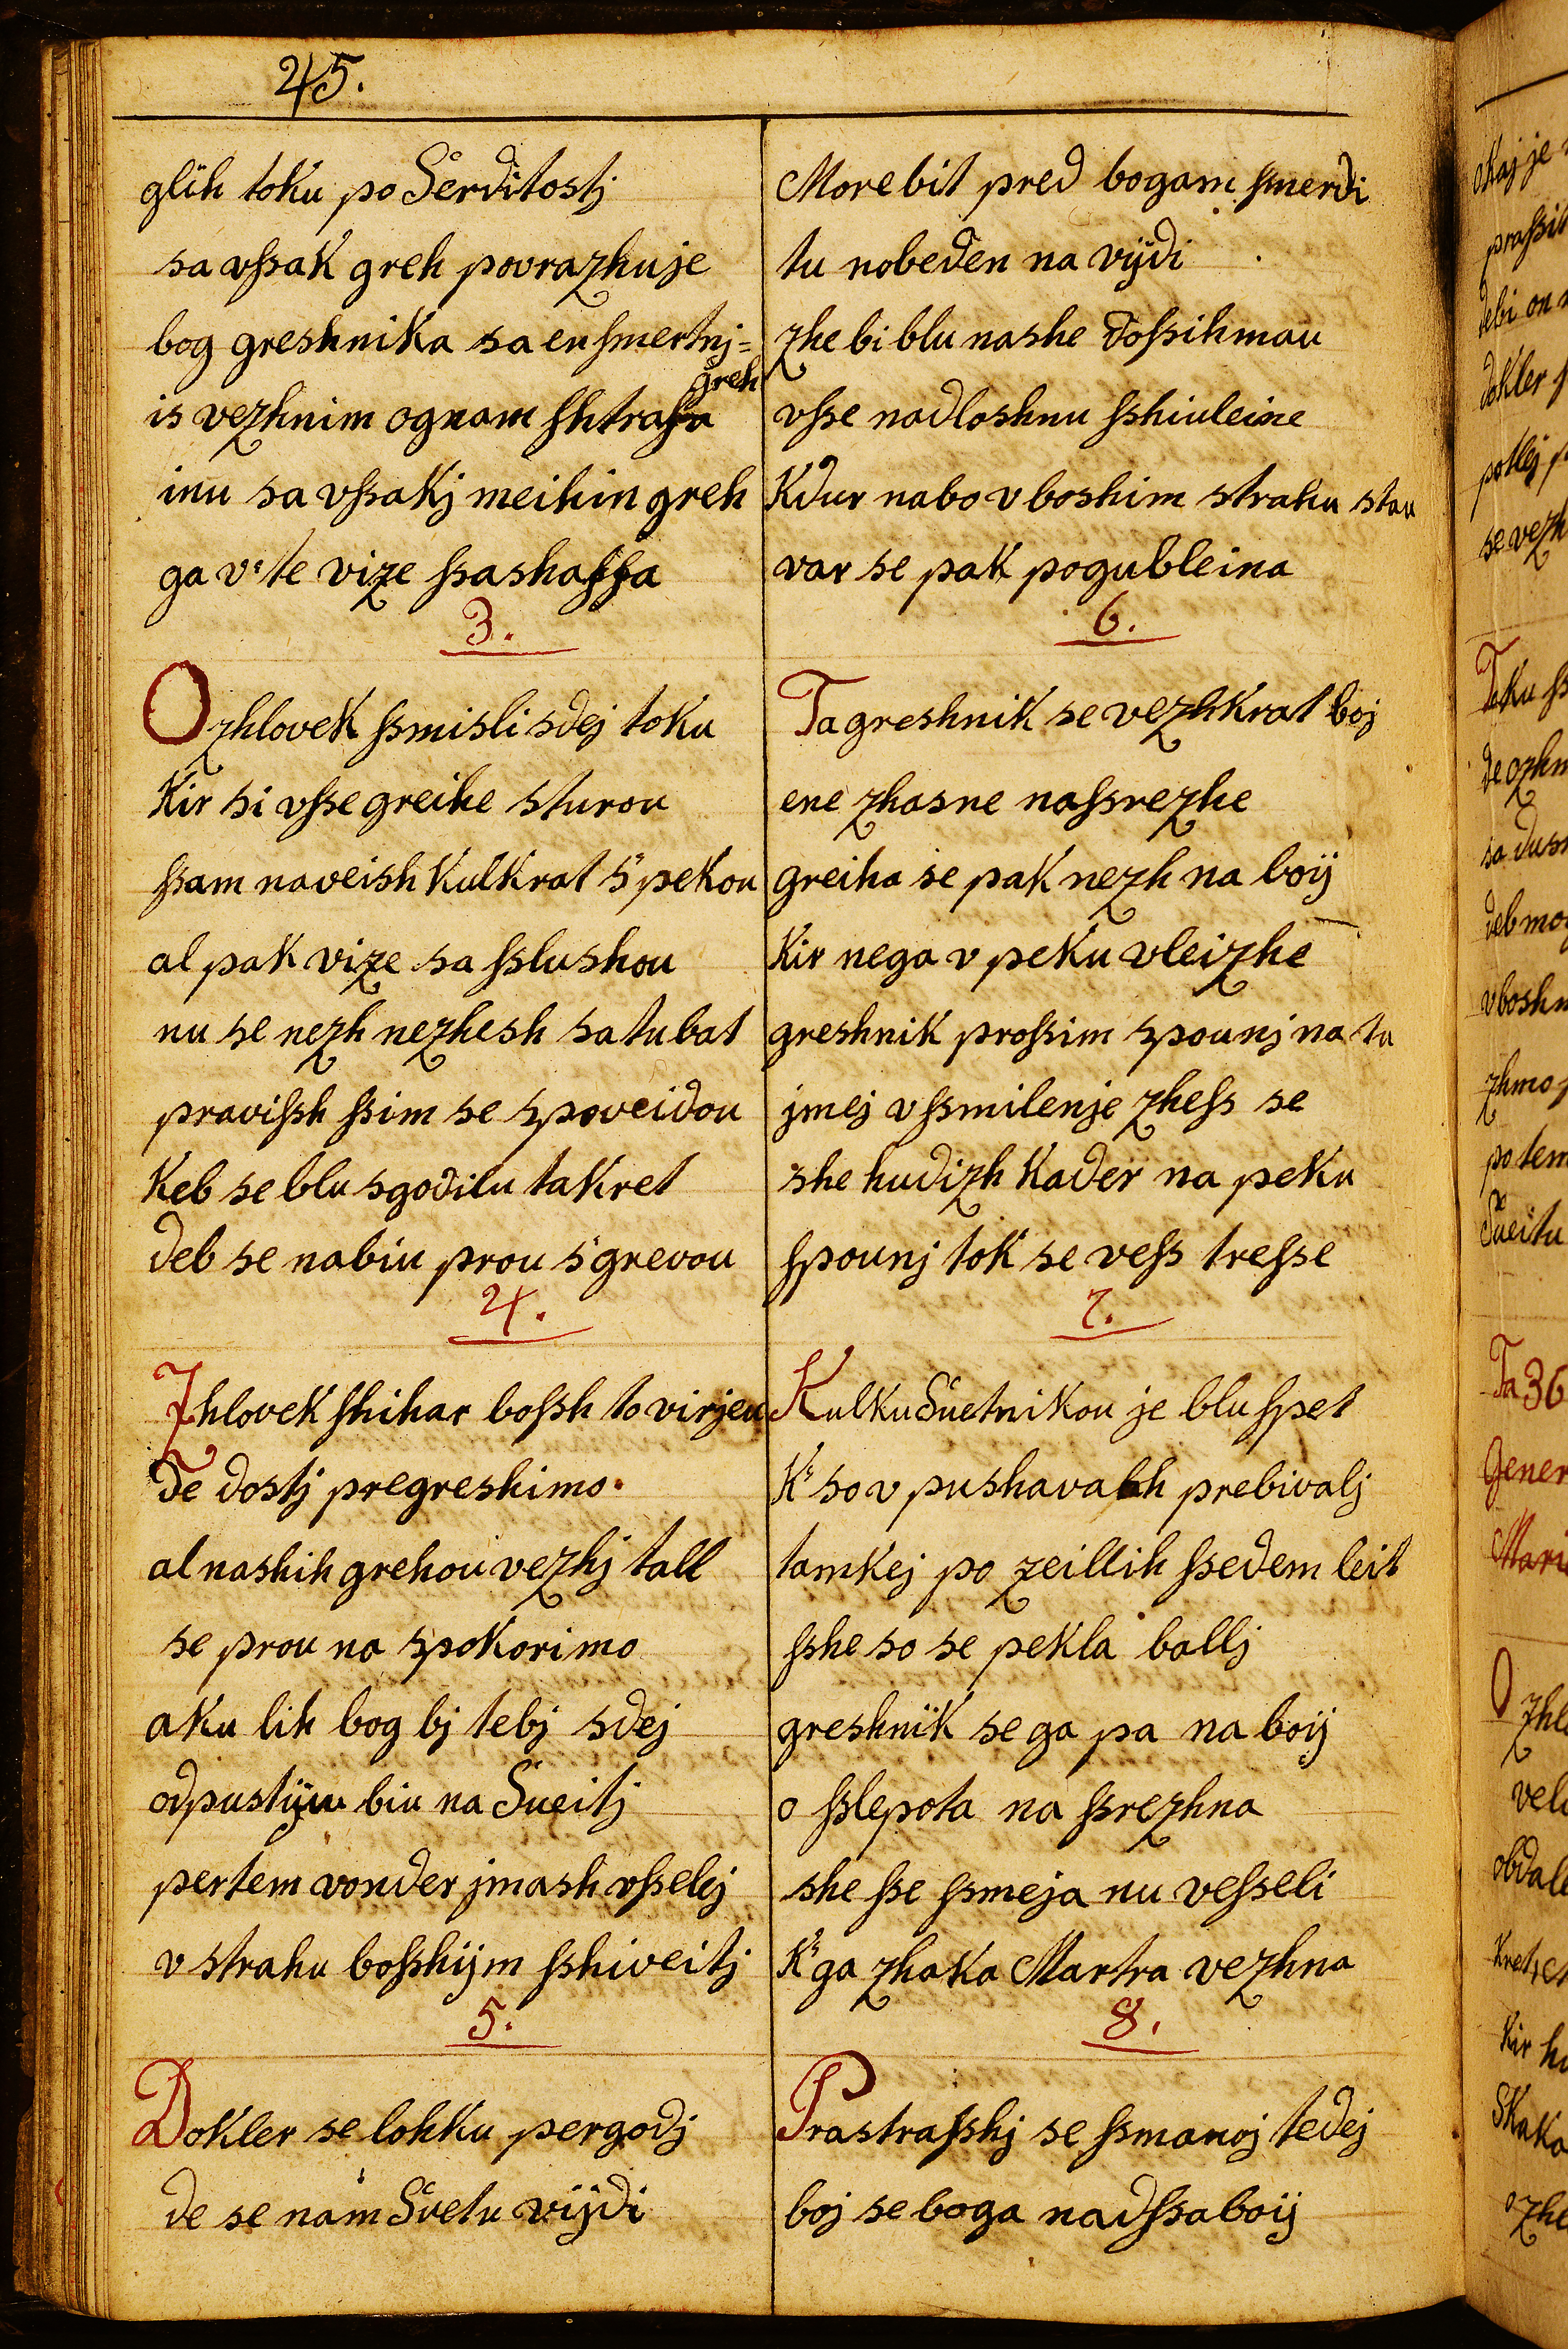 45.
glih toku po Serditostj
sa vſsak greh povrazhuje
bog greshnika sa en ſmertnj=
greh
is vezhnim ognam ſhtraſa
inu sa vſsakj meihin greh
ga v te vize ſsashaſſa
3.
O zhlovek ſsmisli sdej toku
Kir si vſse greihe sturou
ſsam naveish Kulkrat s' pekou
al pak vize sa ſslushou
nu se nezh nezhesh sa tu bat
praviſsh ſsim se spoveidou
Keb se blu sgodilu takret
deb se nabiu prou s' grevou
4.
Zhlovek ſhihar boſsh to virjeu
De dostj pregreshimo.
al nashih grehou vezhj tall
se prou na spokorimo
aku lih bog bj tebj sdej
odpustiju biu na Sueitj
pertem vonder jmash vſselej
v strahu boſshijm ſshiveitj
5.
Dokler se lohku pergodj
de se nam Svetu vijdi
More bit pred bogam ſmerdi
tu nobeden na vijdi
zhe bi blu nashe doſsihmau
vſse nadloshnu ſshiuleine
Kdur nabo v boshim strahu stau
var se pak pogubleina
6.
Ta greshnik se vezhkrat boj
ene zhasne naſsrezhe
greiha se pak nezh na boij
Kir nega v peku vleizhe
greshnik proſsim spounj na tu
jmej vſsmilenje zheſs se
she hudizh Kader na peku
ſpounj tok se veſs treſse
7.
Kulku Suetnikou je blu ſpet
K' so v pushavah prebivalj
tamkej po zeillih ſsedem leit
ſshe so se pekla ballj
greshnik se ga pa na boij
o ſslepota na ſsrezhna
she ſse ſsmeja nu veſseli
K' ga zhaka Martra vezhna
8.
Prastraſshj se ſsmanoj tedej
boj se boga nadſsaboij